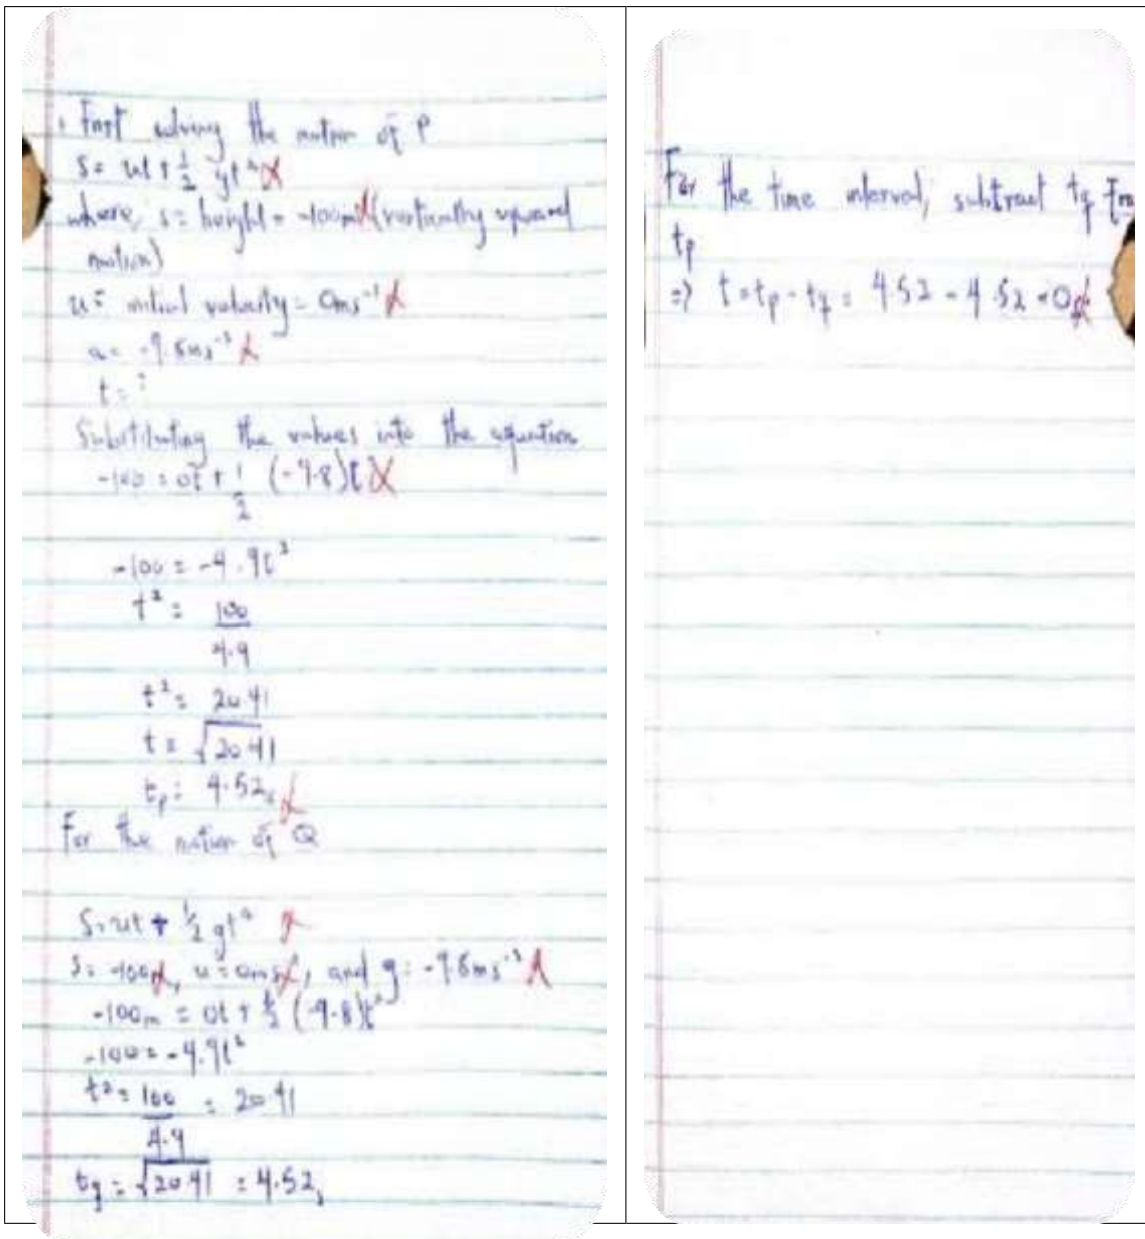 First solving the motion of P
S = ut + 1/2 gt²
where, s = height = -100m (vertically upward
motion)
u = initial velocity = 0ms⁻¹
a = -9.8ms⁻²
t = ?
Substituting the values into the equation
-100 = 0t + 1/2 (-9.8)t
-100 = -4.9t²
t² = 100/4.9
t² = 20.41
t = √20.41
tp = 4.52s
For the motion of Q
S = ut + 1/2 gt²
S = -100m, u = 0ms, and g = -9.8ms⁻²
-100m = 0t + 1/2 (-9.8)t²
-100 = -4.9t²
t² = 100/4.9 = 20.41
tq = √20.41 = 4.52s
For the time interval, subtract tq
tp
=> t = tp - tq = 4.52 - 4.52 = 0